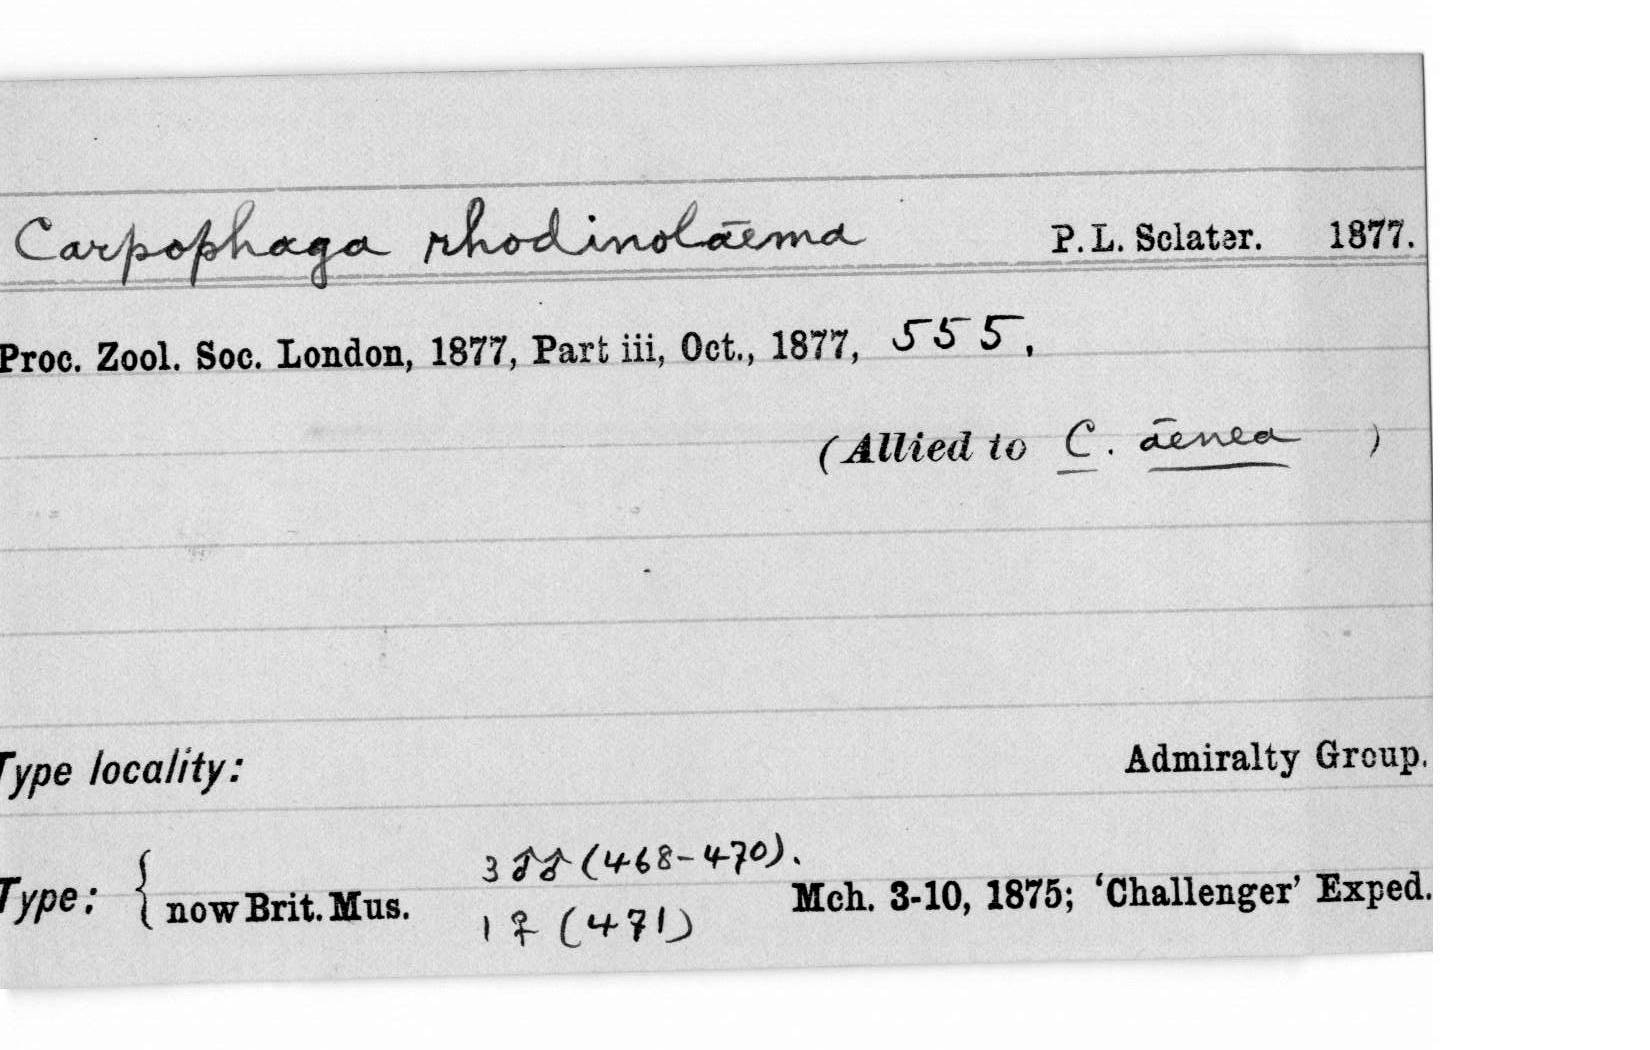 Carpophaga rhodinolāema P. L. Sclater. 1877.
Proc. Zool. Soc. London, 1877, Part iii, Oct., 1877, 555.
(Allied to C. āenea )
Type locality: Admiralty Group.
3 ♂♂ (468-470).
Type: { now Brit. Mus. Mch. 3-10, 1875; ‘Challenger’ Exped.
1 ♀ (471)